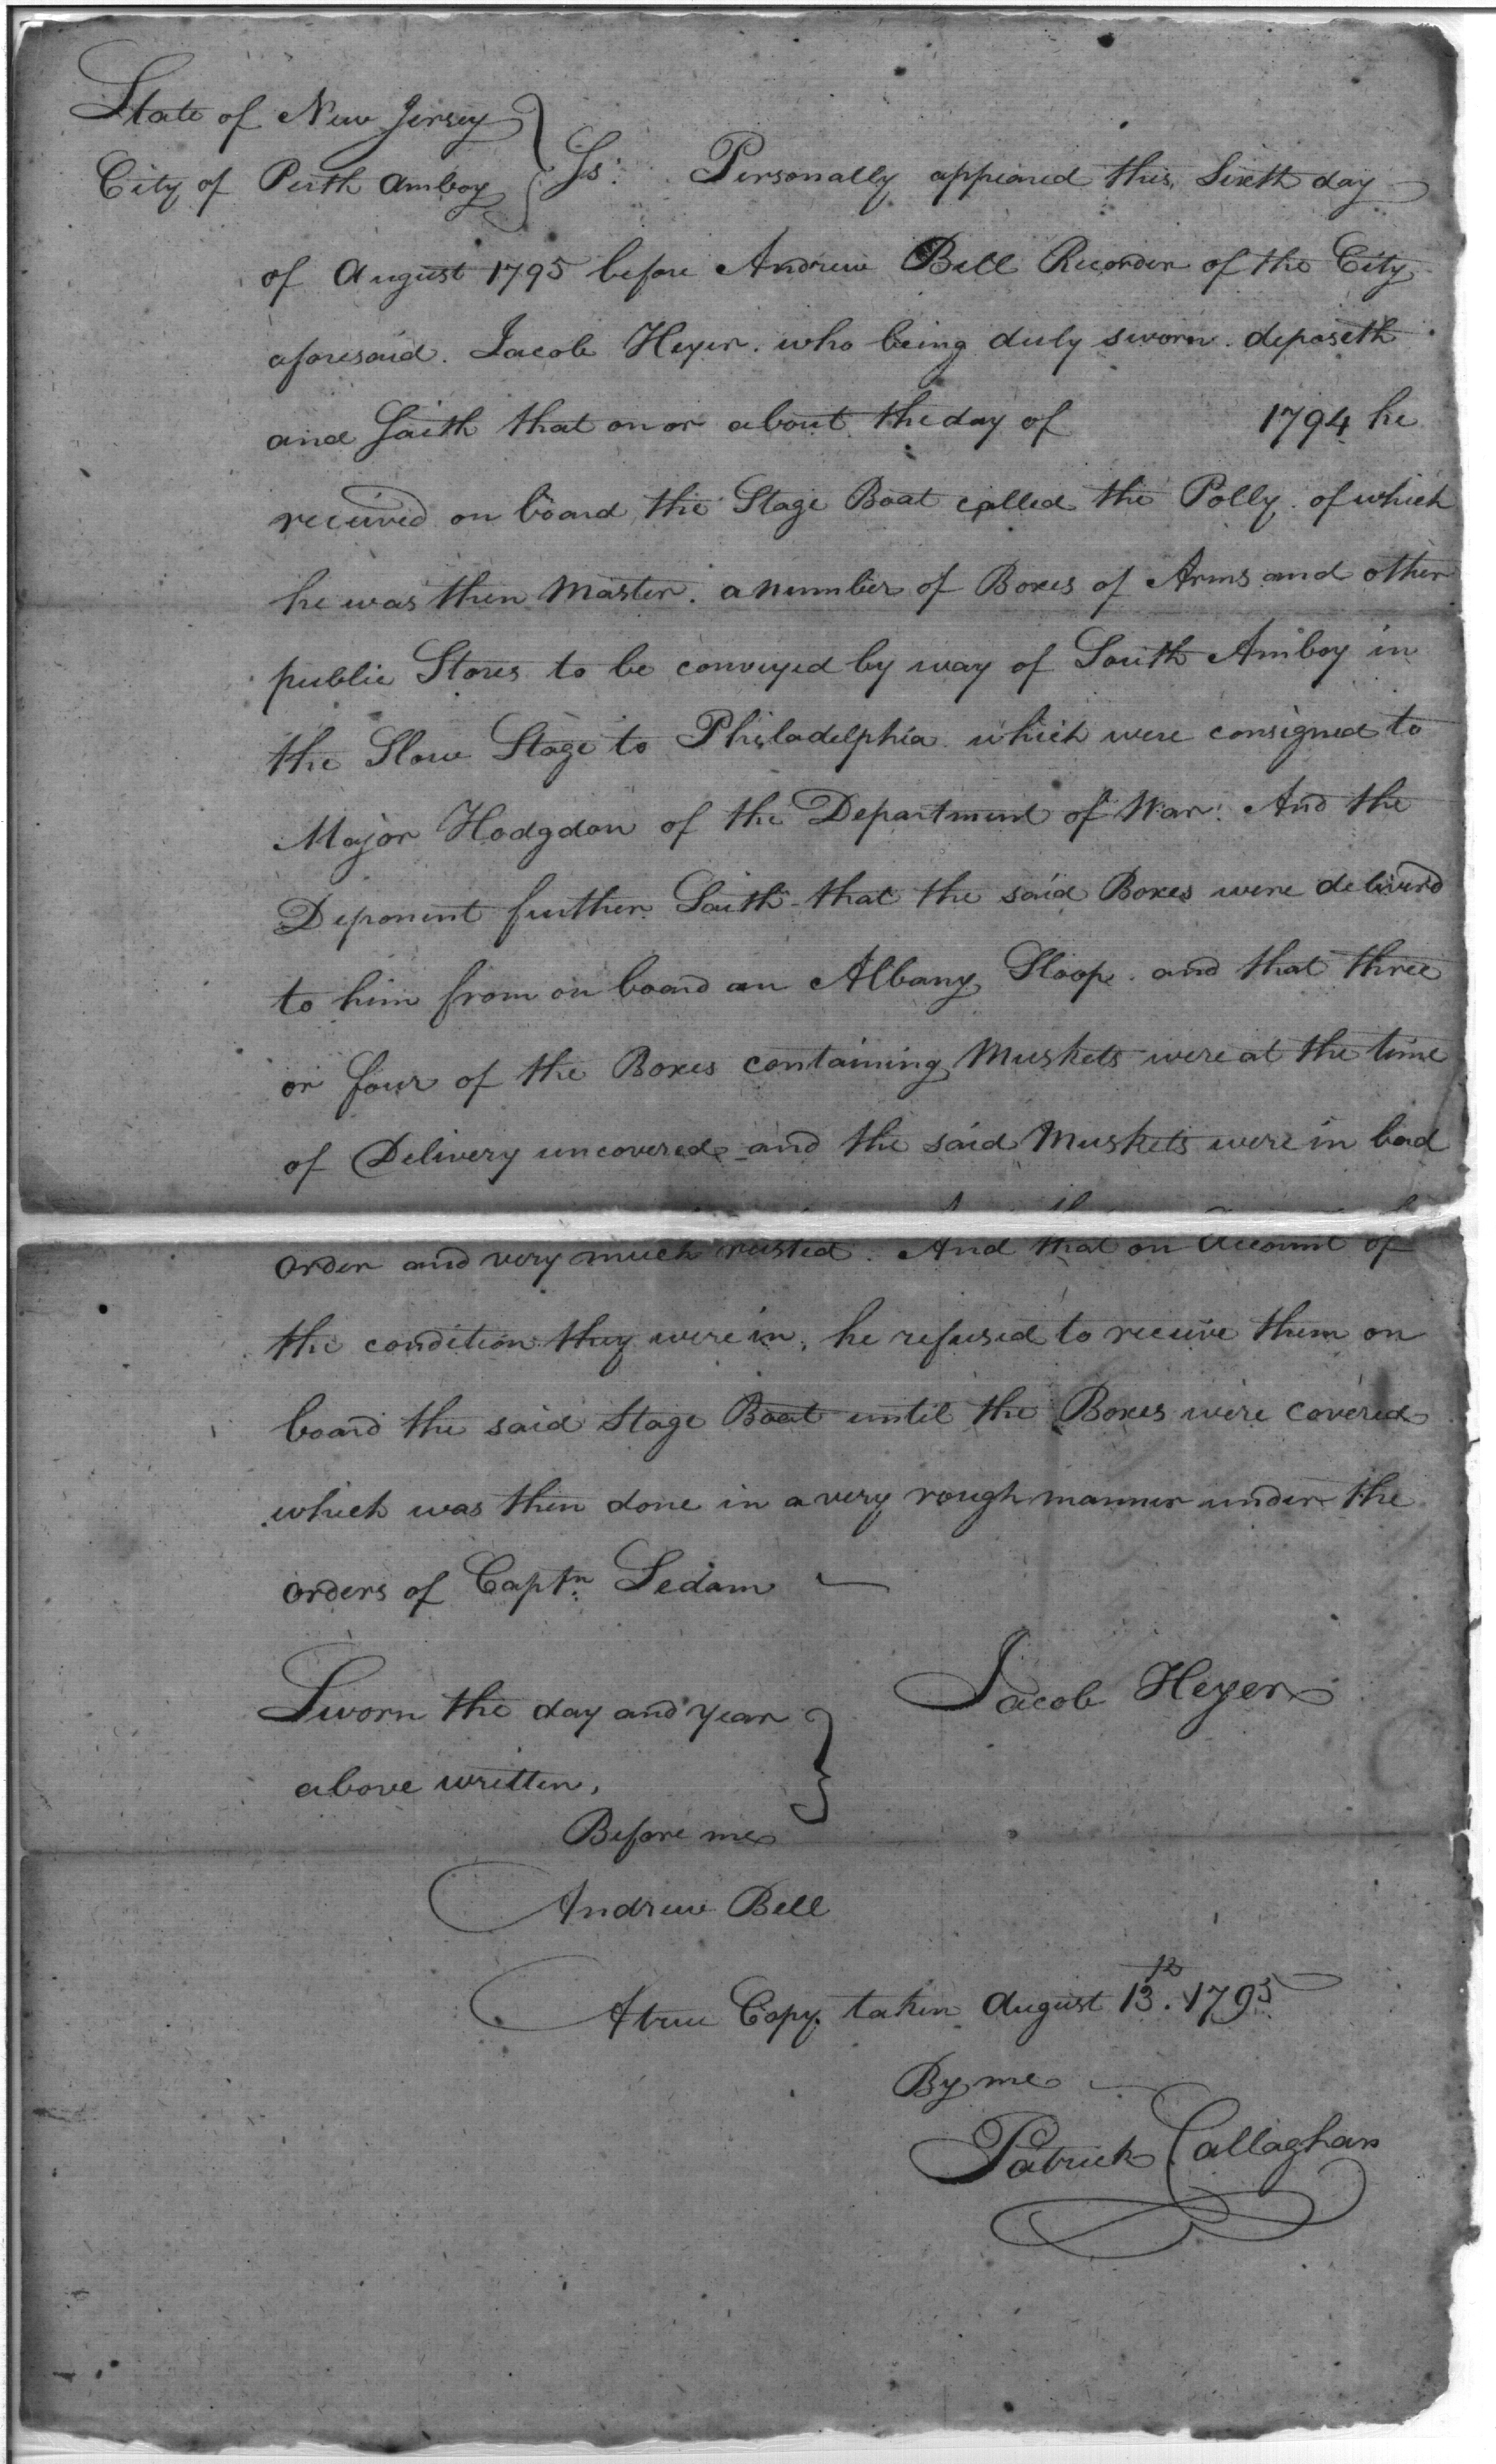 State of New Jersey
City of Perth Amboy } Ss: Personally appeared this Sixth day
of August 1795 before Andrew Bell Recorder of the City
aforesaid. Jacob Heyer. who being duly sworn. deposeth
and Saith that on or about the day of 1794 he
received on board the Stage Boat called the Polly. of which
he was then Master. a number of Boxes of Arms and other
public Stores to be conveyed by way of South Amboy in
the Slow Stage to Philadelphia which were consigned to
Major Hodgdon of the Department of War. And the
Deponent further Saith that the said Boxes were deliverd
to him from on board an Albany Sloop. and that three
or four of the Boxes containing Muskets were at the time
of Delivery uncovered and the said Muskets were in bad
order and very much rusted. And that on Account of
the condition they were in, he refused to receive them on
board the said Stage Boat until the Boxes were covered
which was then done in a very rough manner under the
orders of Captn. Sedam —
Sworn the day and year } Jacob Heyer
above written,
Before me
Andrew Bell
A true Copy taken August 13th. 1795
By me
Patrick Callaghan